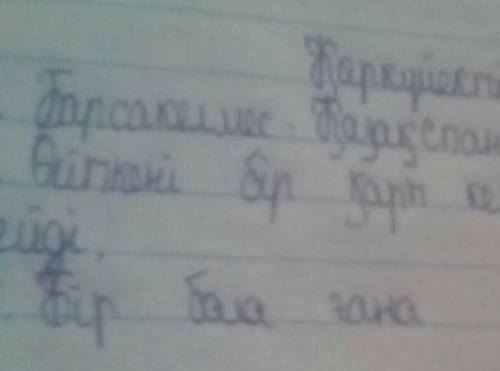 Қаркүйекті
Барсакелмес. Қазақстан
Өйткені бір қарт ке
ейді.
Бір бала ғана